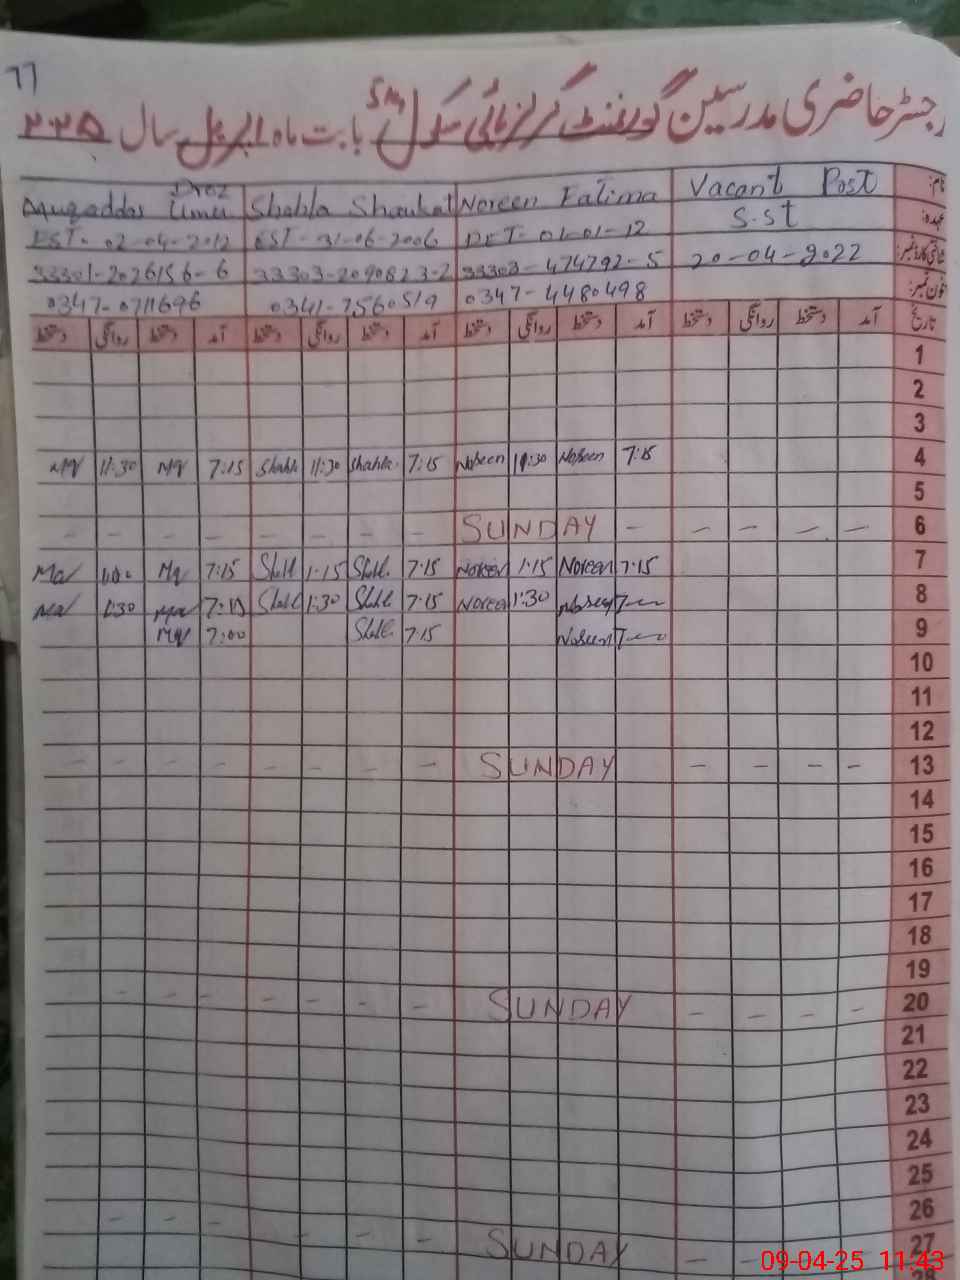 77
رجسٹر حاضری مدرسین گورنمنٹ گرلز ہائی سکول بابت ماہ اپریل سال ۲۰۲۵
نام:
Vacant Post
Noreen Fatima
Shahla Shaukat
Muqaddas Umer Draz
عہدہ:
S.st
DET- 01-01-12
EST- 31-06-2006
EST- 02-04-2012
شناختی کارڈ نمبر:
20-04-2022
33303-474792-5
33303-2090823-2
33301-2026156-6
فون نمبر:
0347-4480498
0341-7560519
0347-0711696
تاریخ آمد دستخط روانگی دستخط آمد دستخط روانگی دستخط آمد دستخط روانگی دستخط آمد دستخط روانگی دستخط
1
2
3
4 7:15 Noreen 11:30 Noreen 7:15 Shahla 11:30 Shahla 7:15 Mq 11:30 Mq
5
6 - - - - - SUNDAY - - - - - - - -
7 7:15 Noreen 1:15 Noreen 7:15 Shahl 1:15 Shahl 7:15 Mq Mq
8 Noreen 1:30 Noreen 7:15 Shahl 1:30 Shahl 7:15 Mq 1:30 Mq
9 Noreen 7:15 Shahl 7:00 Mq
10
11
12
13 - - - - SUNDAY - - - - - - - -
14
15
16
17
18
19
20 - - - - SUNDAY - - - - - - -
21
22
23
24
25
26
27 - SUNDAY - - - - - -
28
09-04-25 11:43